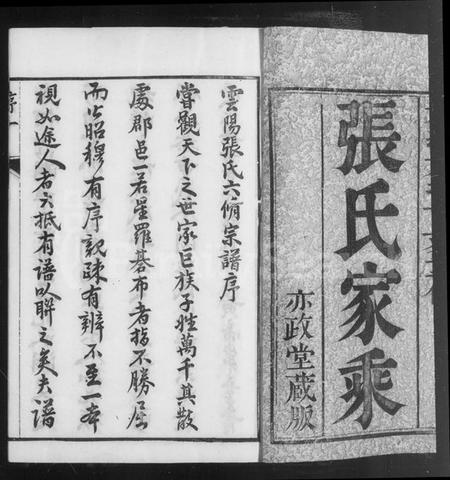 張氏家乘
亦政堂藏版
雲陽張氏六脩宗譜序
嘗觀天下之世家巨族子姓萬千其散
處郡邑一若星羅碁布者指不勝屈
而必昭穆有序親疎有辨不至一本
視如途人者六抵有譜以聯之矣夫譜
序一